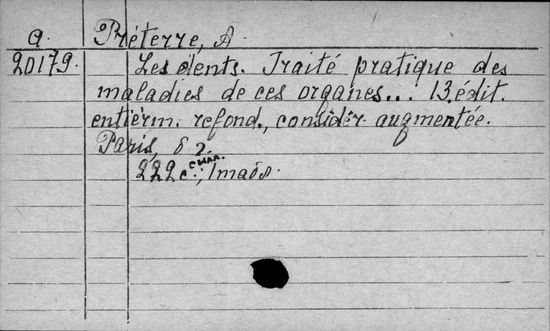 a. Préterre, A
20179. Les dents. Traité pratique des
maladies de ces organes... 13. édit.
entièrm. refond., considér. augmentée.
Paris, б г.
222 с. илл.; 1 табл.